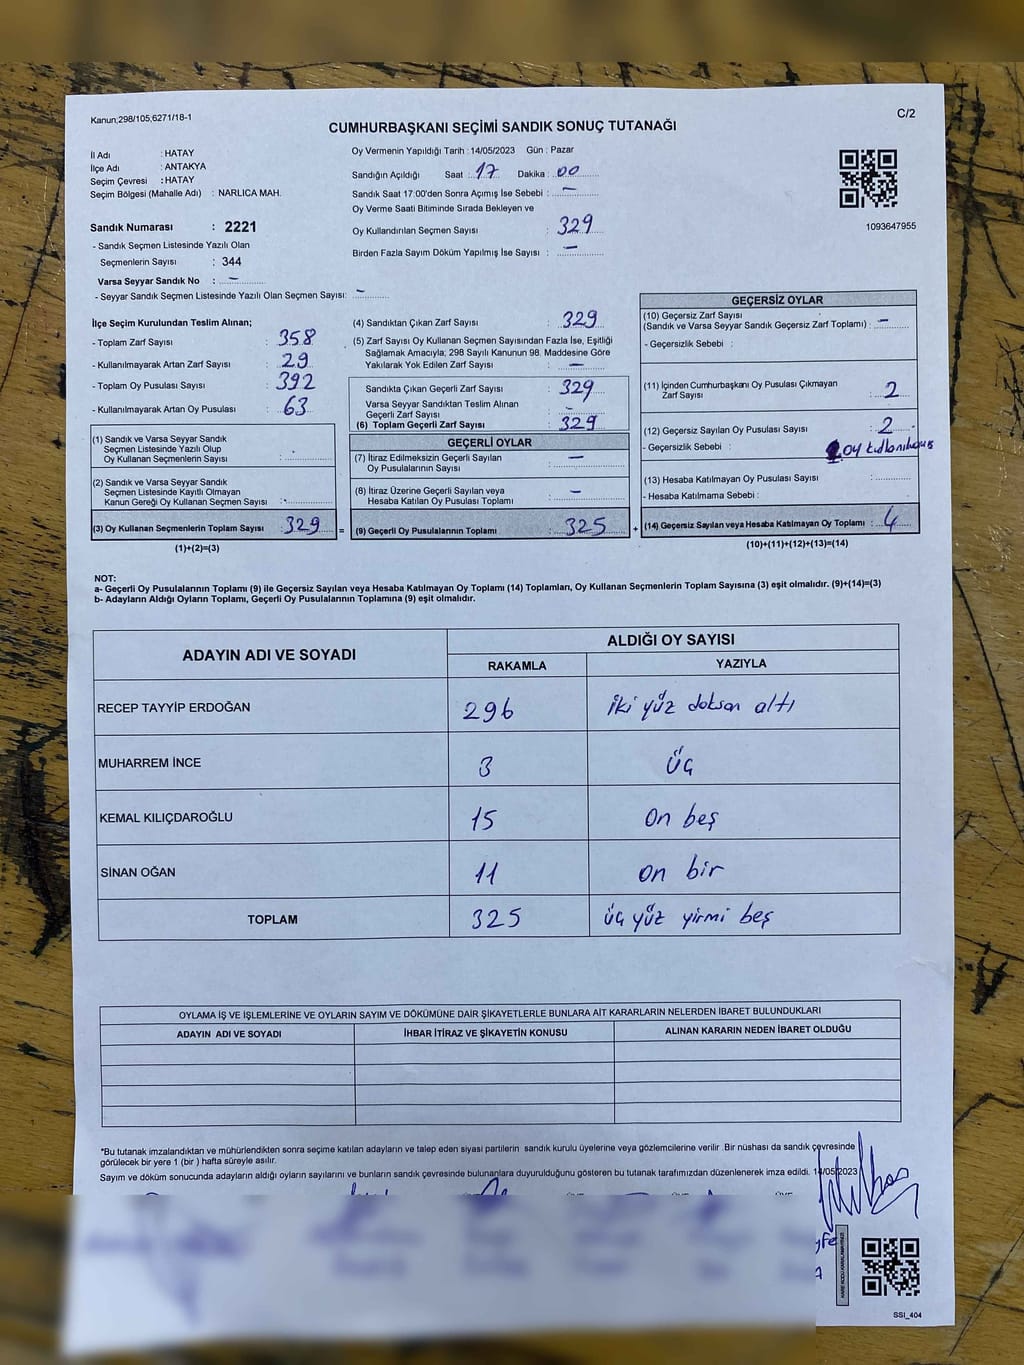 Kanun;298/105;6271/18-1
C/2
CUMHURBAŞKANI SEÇİMİ SANDIK SONUÇ TUTANAĞI
İl Adı : HATAY
İlçe Adı : ANTAKYA
Seçim Çevresi : HATAY
Seçim Bölgesi (Mahalle Adı) : NARLICA MAH.
Sandık Numarası : 2221
- Sandık Seçmen Listesinde Yazılı Olan
Seçmenlerin Sayısı : 344
Varsa Seyyar Sandık No : –
- Seyyar Sandık Seçmen Listesinde Yazılı Olan Seçmen Sayısı: –
Oy Vermenin Yapıldığı Tarih : 14/05/2023 Gün : Pazar
Sandığın Açıldığı Saat : 17 Dakika : 00
Sandık Saat 17:00'den Sonra Açılmış İse Sebebi : –
Oy Verme Saati Bitiminde Sırada Bekleyen ve
Oy Kullandırılan Seçmen Sayısı : 329
Birden Fazla Sayım Döküm Yapılmış İse Sayısı : –
1093647955
İlçe Seçim Kurulundan Teslim Alınan;
- Toplam Zarf Sayısı : 358
- Kullanılmayarak Artan Zarf Sayısı : 29
- Toplam Oy Pusulası Sayısı : 392
- Kullanılmayarak Artan Oy Pusulası : 63
(1) Sandık ve Varsa Seyyar Sandık
Seçmen Listesinde Yazılı Olup
Oy Kullanan Seçmenlerin Sayısı :
(2) Sandık ve Varsa Seyyar Sandık
Seçmen Listesinde Kayıtlı Olmayan
Kanun Gereği Oy Kullanan Seçmen Sayısı :
(3) Oy Kullanan Seçmenlerin Toplam Sayısı : 329 =
(1)+(2)=(3)
(4) Sandıktan Çıkan Zarf Sayısı : 329
(5) Zarf Sayısı Oy Kullanan Seçmen Sayısından Fazla İse, Eşitliği
Sağlamak Amacıyla; 298 Sayılı Kanunun 98. Maddesine Göre
Yakılarak Yok Edilen Zarf Sayısı : –
Sandıkta Çıkan Geçerli Zarf Sayısı : 329
Varsa Seyyar Sandıktan Teslim Alınan
Geçerli Zarf Sayısı : –
(6) Toplam Geçerli Zarf Sayısı : 329
GEÇERLİ OYLAR
(7) İtiraz Edilmeksizin Geçerli Sayılan
Oy Pusulalarının Sayısı : –
(8) İtiraz Üzerine Geçerli Sayılan veya
Hesaba Katılan Oy Pusulası Toplamı : –
(9) Geçerli Oy Pusulalarının Toplamı : 325 +
GEÇERSİZ OYLAR
(10) Geçersiz Zarf Sayısı
(Sandık ve Varsa Seyyar Sandık Geçersiz Zarf Toplamı) : –
- Geçersizlik Sebebi :
(11) İçinden Cumhurbaşkanı Oy Pusulası Çıkmayan
Zarf Sayısı : 2
(12) Geçersiz Sayılan Oy Pusulası Sayısı : 2
- Geçersizlik Sebebi : oy
(13) Hesaba Katılmayan Oy Pusulası Sayısı :
- Hesaba Katılmama Sebebi :
(14) Geçersiz Sayılan veya Hesaba Katılmayan Oy Toplamı : 4
(10)+(11)+(12)+(13)=(14)
NOT:
a- Geçerli Oy Pusulalarının Toplamı (9) ile Geçersiz Sayılan veya Hesaba Katılmayan Oy Toplamı (14) Toplamları, Oy Kullanan Seçmenlerin Toplam Sayısına (3) eşit olmalıdır. (9)+(14)=(3)
b- Adayların Aldığı Oyların Toplamı, Geçerli Oy Pusulalarının Toplamına (9) eşit olmalıdır.
ADAYIN ADI VE SOYADI
ALDIĞI OY SAYISI
RAKAMLA YAZIYLA
RECEP TAYYİP ERDOĞAN 296 iki yüz doksan altı
MUHARREM İNCE 3 üç
KEMAL KILIÇDAROĞLU 15 on beş
SİNAN OĞAN 11 on bir
TOPLAM 325 üç yüz yirmi beş
OYLAMA İŞ VE İŞLEMLERİNE VE OYLARIN SAYIM VE DÖKÜMÜNE DAİR ŞİKAYETLERLE BUNLARA AİT KARARLARIN NELERDEN İBARET BULUNDUKLARI
ADAYIN ADI VE SOYADI İHBAR İTİRAZ VE ŞİKAYETİN KONUSU ALINAN KARARIN NEDEN İBARET OLDUĞU
*Bu tutanak imzalandıktan ve mühürlendikten sonra seçime katılan adayların ve talep eden siyasi partilerin sandık kurulu üyelerine veya gözlemcilerine verilir .Bir nüshası da sandık çevresinde
görülecek bir yere 1 (bir ) hafta süreyle asılır.
Sayım ve döküm sonucunda adayların aldığı oyların sayılarını ve bunların sandık çevresinde bulunanlara duyurulduğunu gösteren bu tutanak tarafımızdan düzenlenerek imza edildi. 14/05/2023
SSI_404